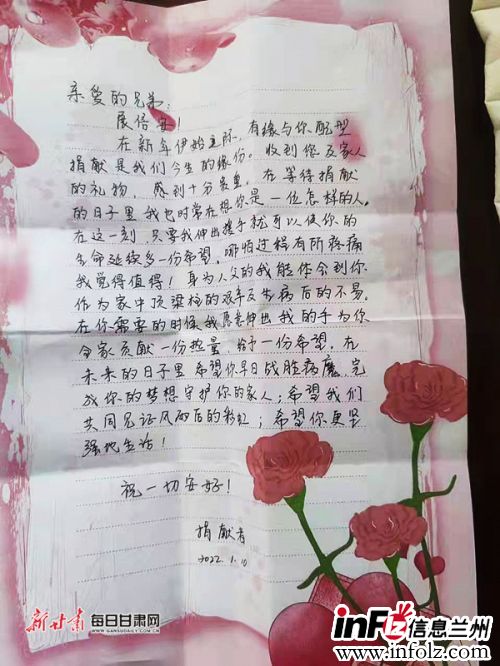 亲爱的兄弟:
展信安!
在新年伊始之际,有缘与你配型
捐献是我们今生的缘份。收到您及家人
的礼物,感到十分贵重。在等待捐献
的日子里我也时常在想你是一位怎样的人。
在这一刻,只要我伸出援手就可以使你的
生命延续多一份希望,哪怕过程有所疼痛
我觉得值得!身为人父的我能体会到你
作为家中顶梁柱的艰辛及生病后的不易。
在你需要的时候我愿意伸出我的手为你
全家贡献一份热量,给予一份希望。在
未来的日子里希望你早日战胜病魔,完
成你的梦想守护你的家人;希望我们
共同见证风雨后的彩虹;希望你更坚
强地生活!
祝一切安好!
捐献者
2022.1.10
新甘肃 每日甘肃网
WWW.GANSUDAILY.COM.CN
inflz 信息兰州
www.infolz.com